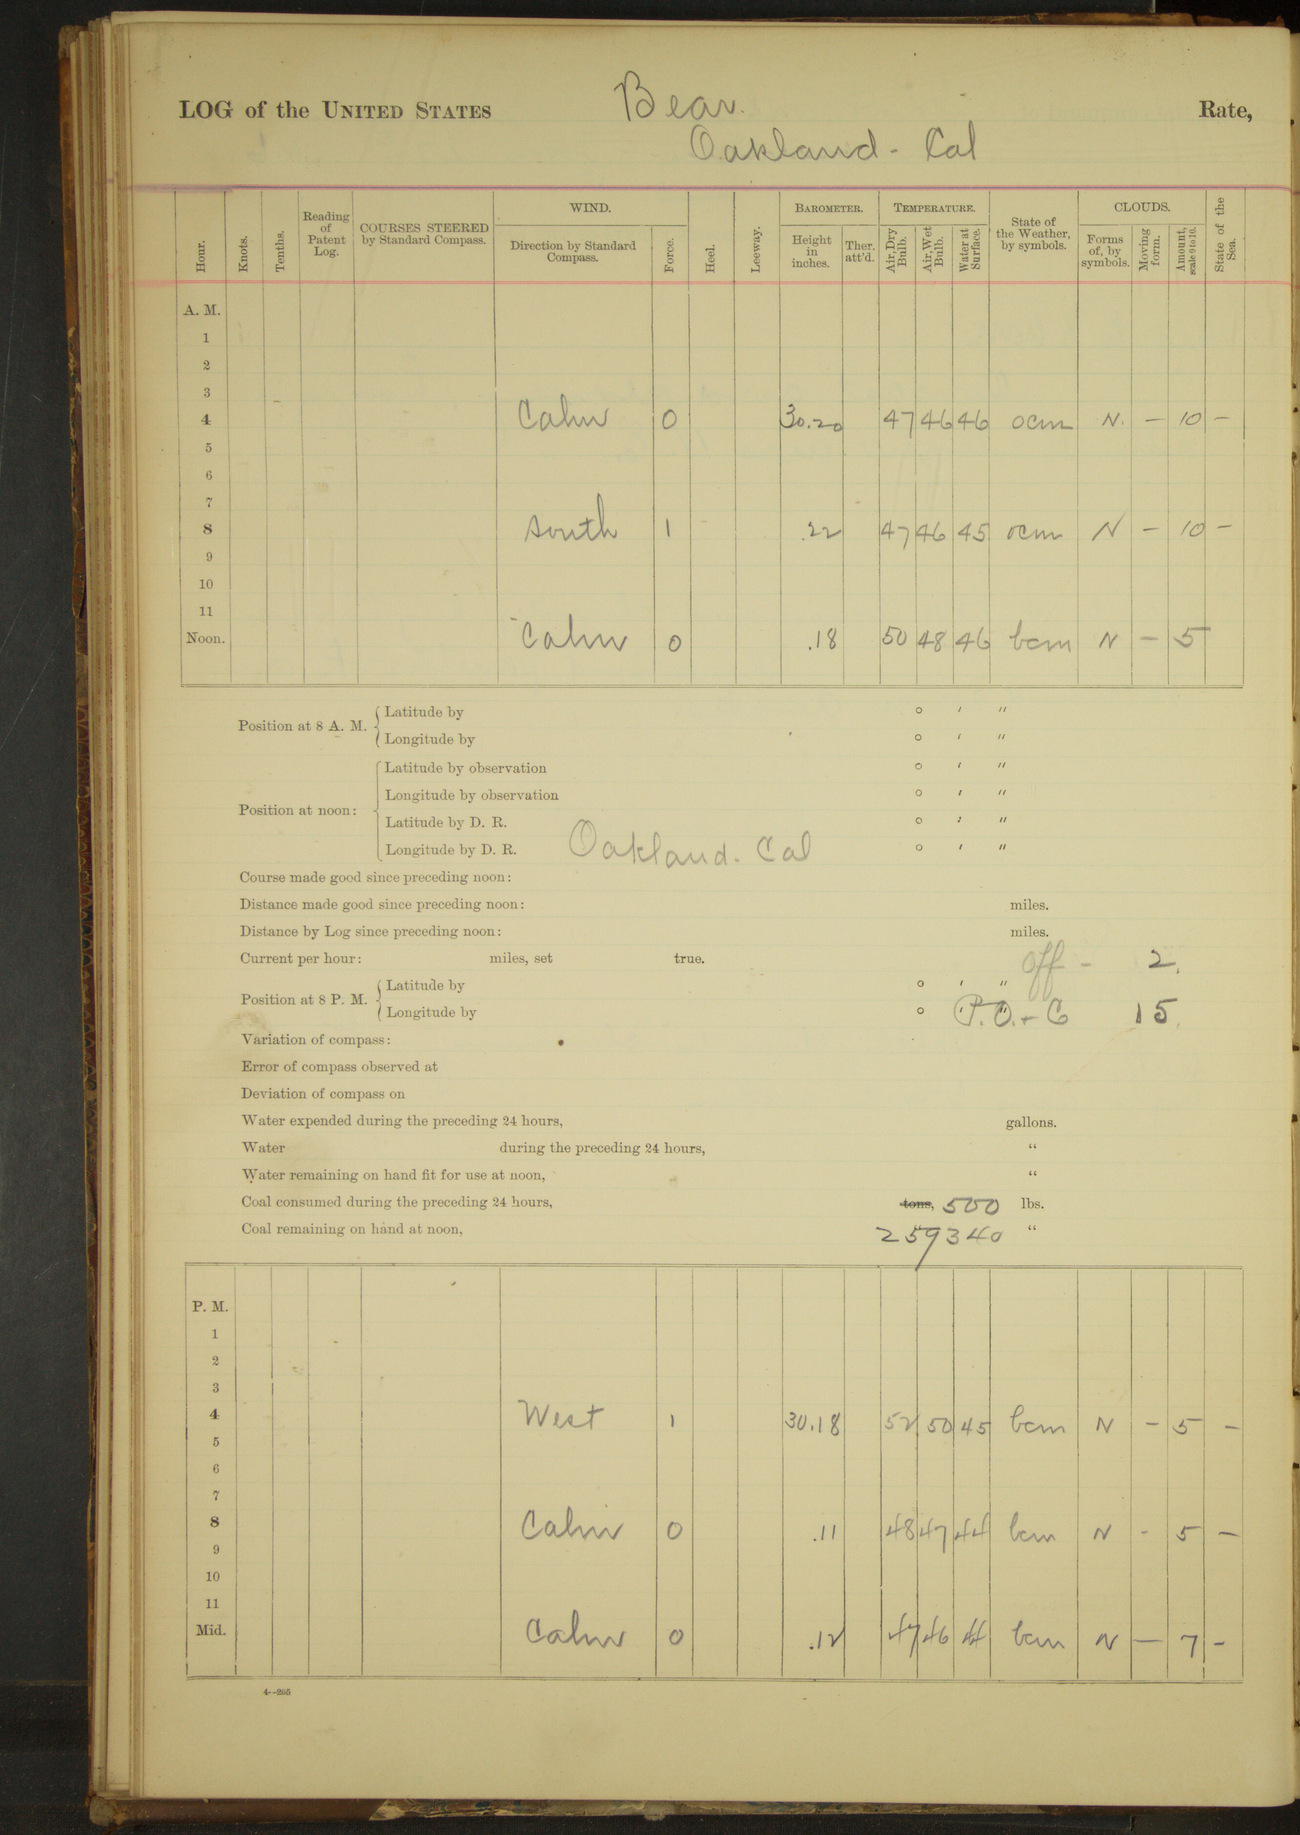 LOG of the UNITED STATES Bear. Rate,
Oakland - Cal
Hour. Knots. Tenths. Reading of Patent Log. COURSES STEERED by Standard Compass. WIND. Direction by Standard Compass. Force. Heel. Leeway. BAROMETER. Height in inches. Ther. att'd. TEMPERATURE. Air, Dry Bulb. Air, Wet Bulb. Water at Surface. State of the Weather, by symbols. CLOUDS. Forms of, by symbols. Moving form. Amount, scale 0 to 10. State of the Sea.
A. M.
1
2
3
4 Calm 0 30.20 47 46 46 ocm N. — 10 —
5
6
7
8 South 1 .22 47 46 45 ocm N — 10 —
9
10
11
Noon. Calm 0 .18 50 48 46 bcm N — 5
Position at 8 A. M. { Latitude by ° ′ ″
Longitude by ° ′ ″
Position at noon: { Latitude by observation ° ′ ″
Longitude by observation ° ′ ″
Latitude by D. R. ° ′ ″
Longitude by D. R. Oakland. Cal ° ′ ″
Course made good since preceding noon:
Distance made good since preceding noon: miles.
Distance by Log since preceding noon: miles.
Current per hour: miles, set true. off - 2.
Position at 8 P. M. { Latitude by ° ′ ″
Longitude by ° ′ ″ P.O. + C 15.
Variation of compass:
Error of compass observed at
Deviation of compass on
Water expended during the preceding 24 hours, gallons.
Water during the preceding 24 hours, “
Water remaining on hand fit for use at noon, “
Coal consumed during the preceding 24 hours, tons, 500 lbs.
Coal remaining on hand at noon, 259340 “
P. M.
1
2
3
4 West 1 30.18 52 50 45 bcm N — 5 —
5
6
7
8 Calm 0 .11 48 47 44 bcm N - 5 —
9
10
11
Mid. Calm 0 .12 47 46 44 bcm N — 7 -
4--265